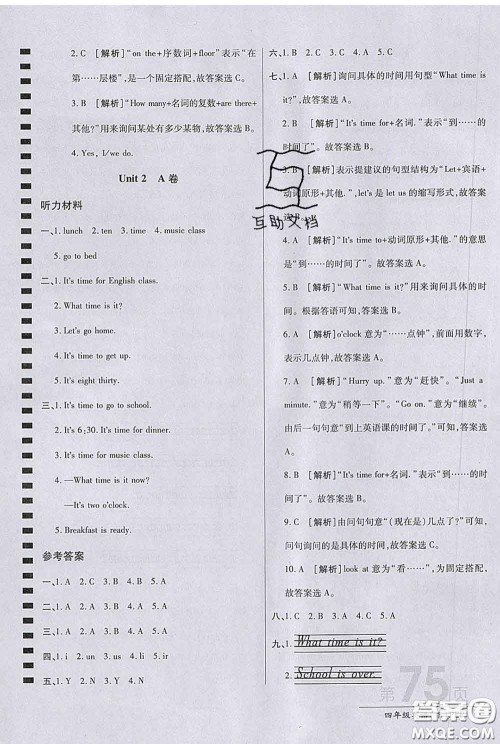 2. C [解析]“on the+序数词+floor”表示“在
第……层楼”，是一个固定搭配，故答案选 C。
3. B [解析]“How many+名词的复数+are there+
其他?”用来询问某处有多少某物，故答案选 B。
4. Yes, I/we do.
Unit 2 A 卷
听力材料
一、1. lunch 2. ten 3. time 4. music class
5. go to bed
二、1. It's time for English class.
2. What time is it?
3. Let's go home.
4. It's time to get up.
5. It's eight thirty.
三、1. It's time to go to school.
2. It's 6:30. It's time for dinner.
3. It's time for music class.
4. —What time is it now?
—It's two o'clock.
5. Breakfast is ready.
参考答案
一、1. A 2. C 3. B 4. A 5. A
二、1. B 2. C 3. A 4. B 5. C
三、1. B 2. B 3. A 4. A 5. A
四、1. i 2. un 3. u 4. ir 5. ir
五、1. Y 2. N 3. N 4. N 5. Y
六、1. A 2. B 3. C 4. A 5. C
七、1. A [解析]询问具体的时间用句型“What time is
it?”，故答案选 A。
2. B [解析]“It's time for+名词.”表示“到……的
时间了”，故答案选 B。
3. B [解析]表示提建议的句型结构为“Let+宾语+
动词原形+其他.”，let's 是 let us 的缩写形式，故答案
选 B。
4. A [解析]“It's time to+动词原形+其他.”的意思
是“到……的时间了”，故答案选 A。
5. B [解析]“What time is it?”用来询问具体的时
间。根据答语可知，答案选 B。
6. A [解析]o'clock 意为“……点钟”，前面用数字，
表示几点钟，故答案选 A。
7. C [解析]“Hurry up.”意为“赶快”。“Just a
minute.”意为“稍等一下”。“Go on.”意为“继续”。
由后一句句意“到上英语课的时间了”可知，答案
选 C。
8. B [解析]“It's time for+名词.”表示“到……的
时间了”。故答案选 B。
9. C [解析]由问句句意“(现在是)几点了?”可知，
问句询问的是时间，故答案选 C。
10. A [解析]look at 意为“看……”，为固定搭配，
故答案选 A。
八、1. C 2. A 3. D 4. B
九、1. What time is it?
2. School is over.
第75页
四年级
互助文档
答案圈
MXQE.COM